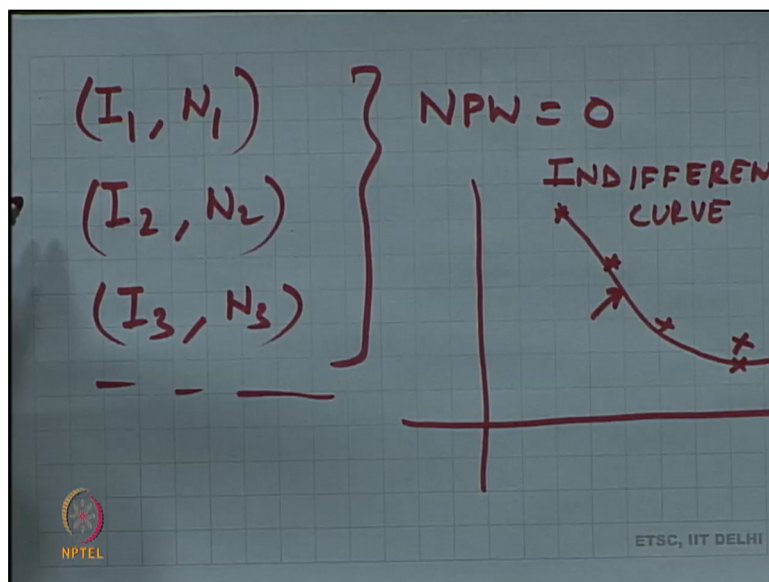 (I₁, N₁)
(I₂, N₂)
(I₃, N₃)
NPW = 0
INDIFFEREN
CURVE
NPTEL
ETSC, IIT DELHI